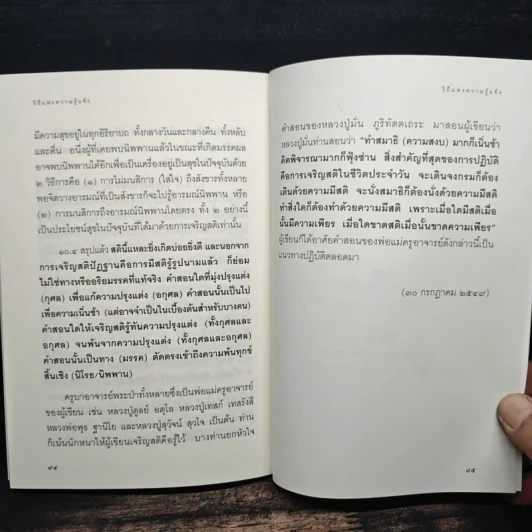 วิถีแห่งความรู้แจ้ง
มีความสุขอยู่ในทุกอิริยาบถ ทั้งกลางวันและกลางคืน ทั้งหลับ
และตื่น อนึ่งผู้ที่เคยพบนิพพานแล้วในขณะที่เกิดมรรคผล
อาจพบนิพพานได้อีกเพื่อเป็นเครื่องอยู่เป็นสุขในปัจจุบันด้วย
๒ วิธีการคือ (๑) การไม่มนสิการ (ใส่ใจ) ถึงสังขารทั้งหลาย
พอจิตวางอารมณ์ที่เป็นสังขารก็จะไปรู้อารมณ์นิพพาน หรือ
(๒) การมนสิการถึงอารมณ์นิพพานโดยตรง ทั้ง ๒ อย่างนี้
เป็นประโยชน์สุขในปัจจุบันที่ได้มาด้วยการเจริญสติเท่านั้น
๑๐.๔ สรุปแล้ว สตินี้แหละยิ่งเกิดบ่อยยิ่งดี และนอกจาก
การเจริญสติปัฏฐานคือการมีสติรู้รูปนามแล้ว ก็ย่อม
ไม่ใช่ทางหรืออริยมรรคที่แท้จริง คำสอนใดที่มุ่งปรุงแต่ง
(กุศล) เพื่อแก้ความปรุงแต่ง (อกุศล) คำสอนนั้นเป็นไป
เพื่อความเนิ่นช้า (แต่อาจจำเป็นในเบื้องต้นสำหรับบางคน)
คำสอนใดให้เจริญสติรู้ทันความปรุงแต่ง (ทั้งกุศลและ
อกุศล) จนพ้นจากความปรุงแต่ง (ทั้งกุศลและอกุศล)
คำสอนนั้นเป็นทาง (มรรค) ตัดตรงเข้าถึงความพ้นทุกข์
สิ้นเชิง (นิโรธ/นิพพาน)
ครูบาอาจารย์พระป่าทั้งหลายซึ่งเป็นพ่อแม่ครูอาจารย์
ของผู้เขียน เช่น หลวงปู่ดูลย์ อตุโล หลวงปู่เทสก์ เทสรังสี
หลวงพ่อพุธ ฐานิโย และหลวงปู่สุวัจน์ สุวโจ เป็นต้น ท่าน
ก็เน้นนักหนาให้ผู้เขียนเจริญสติคือรู้ไว้ บางท่านยกหัวใจ
๘๔
วิถีแห่งความรู้แจ้ง
คำสอนของหลวงปู่มั่น ภูริทัตตเถระ มาสอนผู้เขียนว่า
หลวงปู่มั่นท่านสอนว่า "ทำสมาธิ (ความสงบ) มากก็เนิ่นช้า
คิดพิจารณามากก็ฟุ้งซ่าน สิ่งสำคัญที่สุดของการปฏิบัติ
คือการเจริญสติในชีวิตประจำวัน จะเดินจงกรมก็ต้อง
เดินด้วยความมีสติ จะนั่งสมาธิก็ต้องนั่งด้วยความมีสติ
ทำสิ่งใดก็ต้องทำด้วยความมีสติ เพราะเมื่อใดมีสติเมื่อ
นั้นมีความเพียร เมื่อใดขาดสติเมื่อนั้นขาดความเพียร"
ผู้เขียนก็ได้อาศัยคำสอนของพ่อแม่ครูอาจารย์ดังกล่าวนี้เป็น
แนวทางปฏิบัติตลอดมา
(๓๐ กรกฎาคม ๒๕๔๙)
๘๕